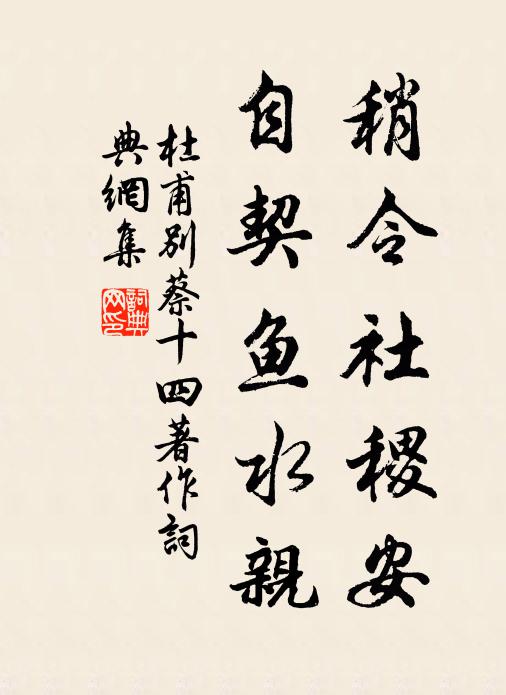 稍令社稷安
自契鱼水親
杜甫別蔡十四著作詞
典網集
詞典网印